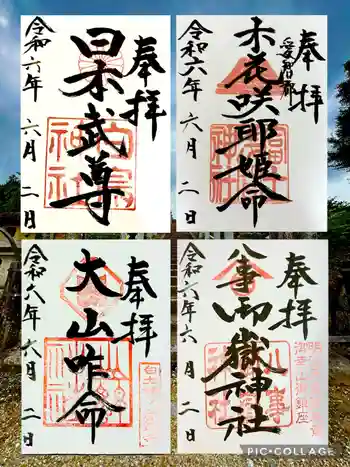 奉拝
日本武尊
令和六年 六月 二日
奉拝
愛智郡
木花咲耶姫命
令和六年 六月 二日
奉拝
大山咋命
令和六年 六月 二日
奉拝
八事御嶽神社
令和六年 六月 二日
PIC•COLLAGE